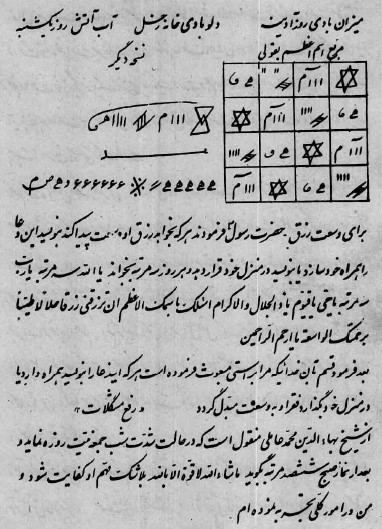 میزان بادی روز آدینه دلو بادی خانه زحل آب آتش روز یکشنبه
مربع اسم اعظم بقولی
نسخه دیگر
برای وسعت رزق حضرت رسول فرمودند هر که بخواهد رزق او وسعت پیدا کند بنویسد این دعا
را همراه خود سازد یا بنویسد در منزل خود قرار دهد و هر روز مرتبه بخواند یا الله سه مرتبه یا رب
سه مرتبه یا حی یا قیوم یا ذا الجلال و الاکرام اسئلک باسمک الاعظم ان ترزقنی رزقا حلالا طیبا
برحمتک الواسعة یا ارحم الراحمین
بعد فرمود قسم بآن خدائیکه مرا براستی مبعوث فرموده است هر که این دعا را بنویسد همراه دارد یا
در منزل خود گذارد فقر او بوسعت مبدل گردد « رفع مشکلات »
از شیخ بهاء الدین محمد عاملی منقول است که در حالت شدت شب جمعه نیت روزه نماید و
بعد از نماز صبح ششصد مرتبه بگوید ما شاء الله لا قوة الا بالله بلا شک مهم او کفایت شود و
من در امور کلی تجربه نموده ام